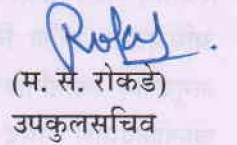 (म. सं. रोकडे)
उपकुलसचिव